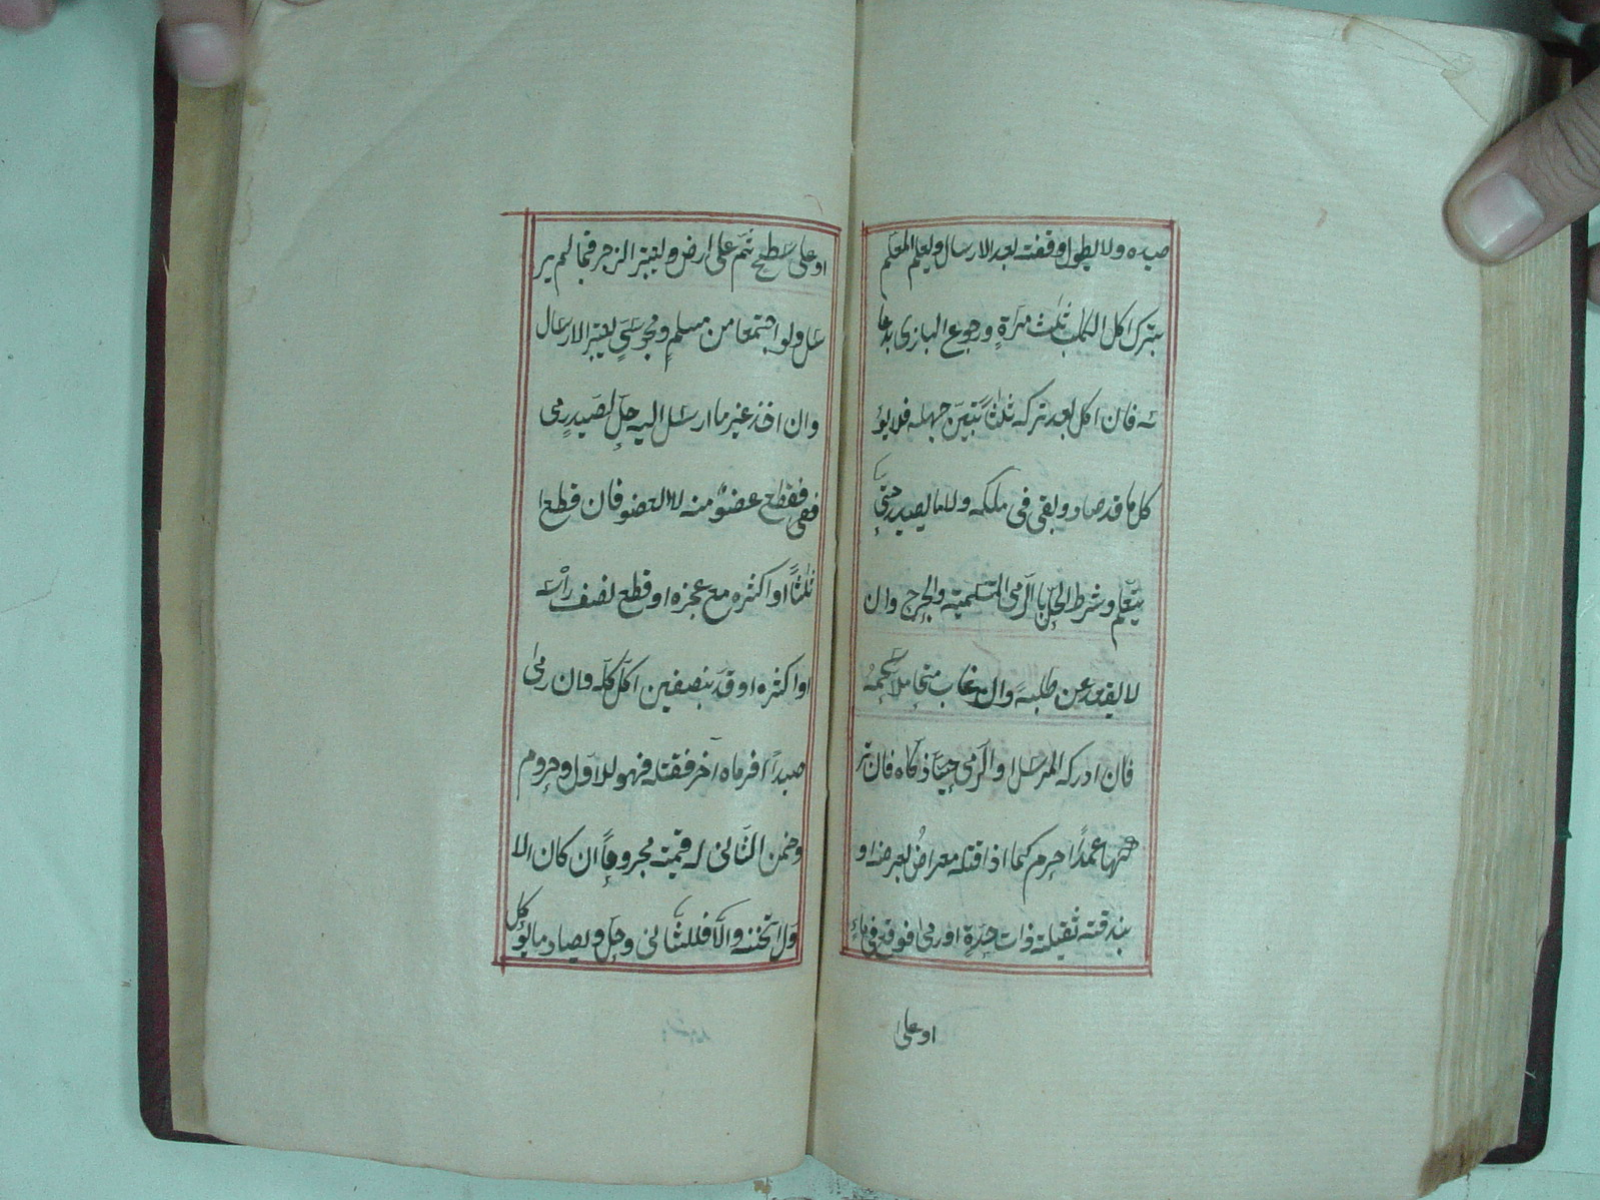 صيده ولا يطول وقفته بعد الارسال ويعلم المعلم
بترك اكل الكلب ثلث مرة ورجوع البازى بدعا
ئه فان اكل بعد تركه ثلثا تبين جهله فلا يؤ
كل ما قد صاد وبقى فى ملكه ولا ما يصيد حتى
يتعلم وشرط الحل بالرمى التسمية والجرح وان
لا يقعد عن طلبه وان غاب متحاملا سهمه
فان ادركه المرسل او الرمى حيا ذكاه فان تر
كها عمدا حرم كما اذا قتله معراض بعرضه او
بندقته ثقيلة ذات حدة او رمى فوقع فى ماء
او على
او على سطح ثم على ارض ويعتبر الزجر فيما لم ير
سل ولو اجتمعا من مسلم ومجوسى يعتبر الارسال
وان اخذ غير ما ارسل اليه حل لصيد رمى
فقطع عضو منه لا العضو فان قطع ا
ثلثا او اكثره مع عجزه او قطع نصف راسه
او اكثره او قد بنصفين اكل كله وان رمى
صيدا فرماه اخر فقتله فهو للاول وحرم
وضمن الثانى له قيمته مجروحا ان كان الا
ول اثخنه والا فللثانى وحل ويصاد ما يؤكل